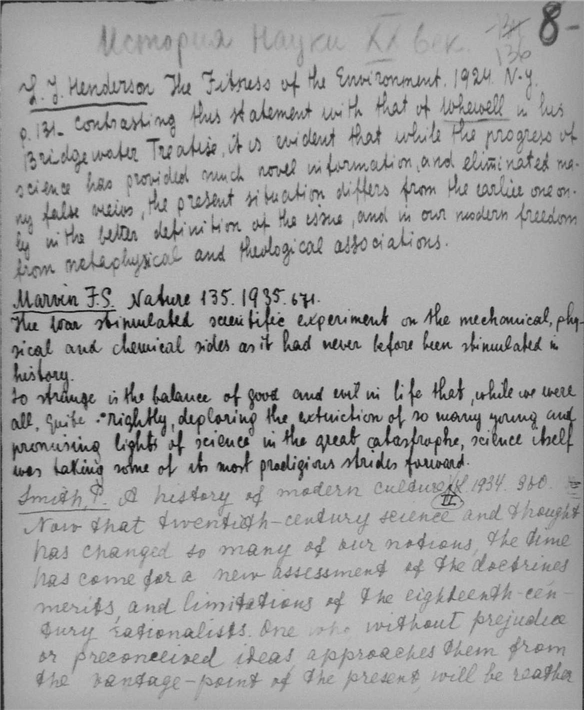 8-
История Науки XX век.
130
L. J. Henderson The Fitness of the Environment. 1924. N.Y.
p. 131- Contrasting this statement with that of Whewell in his
Bridgewater Treatise, it is evident that while the progress of
science has provided much novel information, and eliminated ma-
ny false views, the present situation differs from the earlier one on-
ly in the better definition of the issue, and in our modern freedom
from metaphysical and theological associations.
Marvin F.S. Nature 135. 1935. 671.
The war stimulated scientific experiment on the mechanical, phy-
sical and chemical sides as it had never before been stimulated in
history.
So strange is the balance of good and evil in life that, while we were
all, quite rightly, deploring the extinction of so many young and
promising lights of science in the great catastrophe, science itself
was taking some of its most prodigious strides forward.
Smith, P. A history of modern culture II 1934. 360.
Now that twentieth-century science and thought
has changed so many of our notions, the time
has come for a new assessment of the doctrines
merits, and limitations of the eighteenth-cen-
tury rationalists. One who, without prejudice
or preconceived ideas, approaches them from
the vantage-point of the present, will be reather